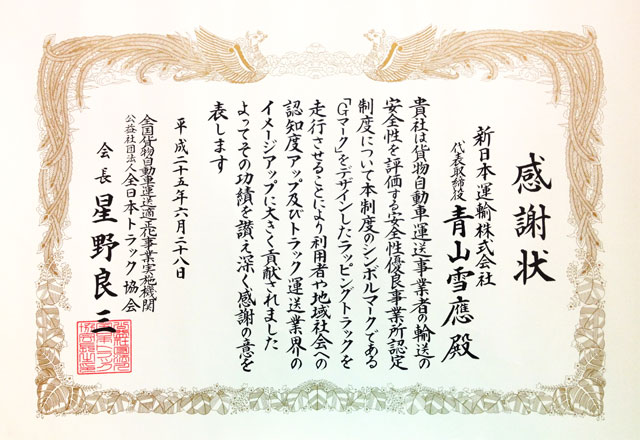 感謝状
新日本運輸株式会社
代表取締役 青山雪應殿
貴社は貨物自動車運送事業者の輸送の
安全性を評価する安全性優良事業所認定
制度について本制度のシンボルマークである
「Gマーク」をデザインしたラッピングトラックを
走行させることにより利用者や地域社会への
認知度アップ及びトラック運送業界の
イメージアップに大きく貢献されました
よってその功績を讃え深く感謝の意を
表します
平成二十五年六月二十八日
全国貨物自動車運送適正化事業実施機関
公益社団法人全日本トラック協会
会長 星野良三